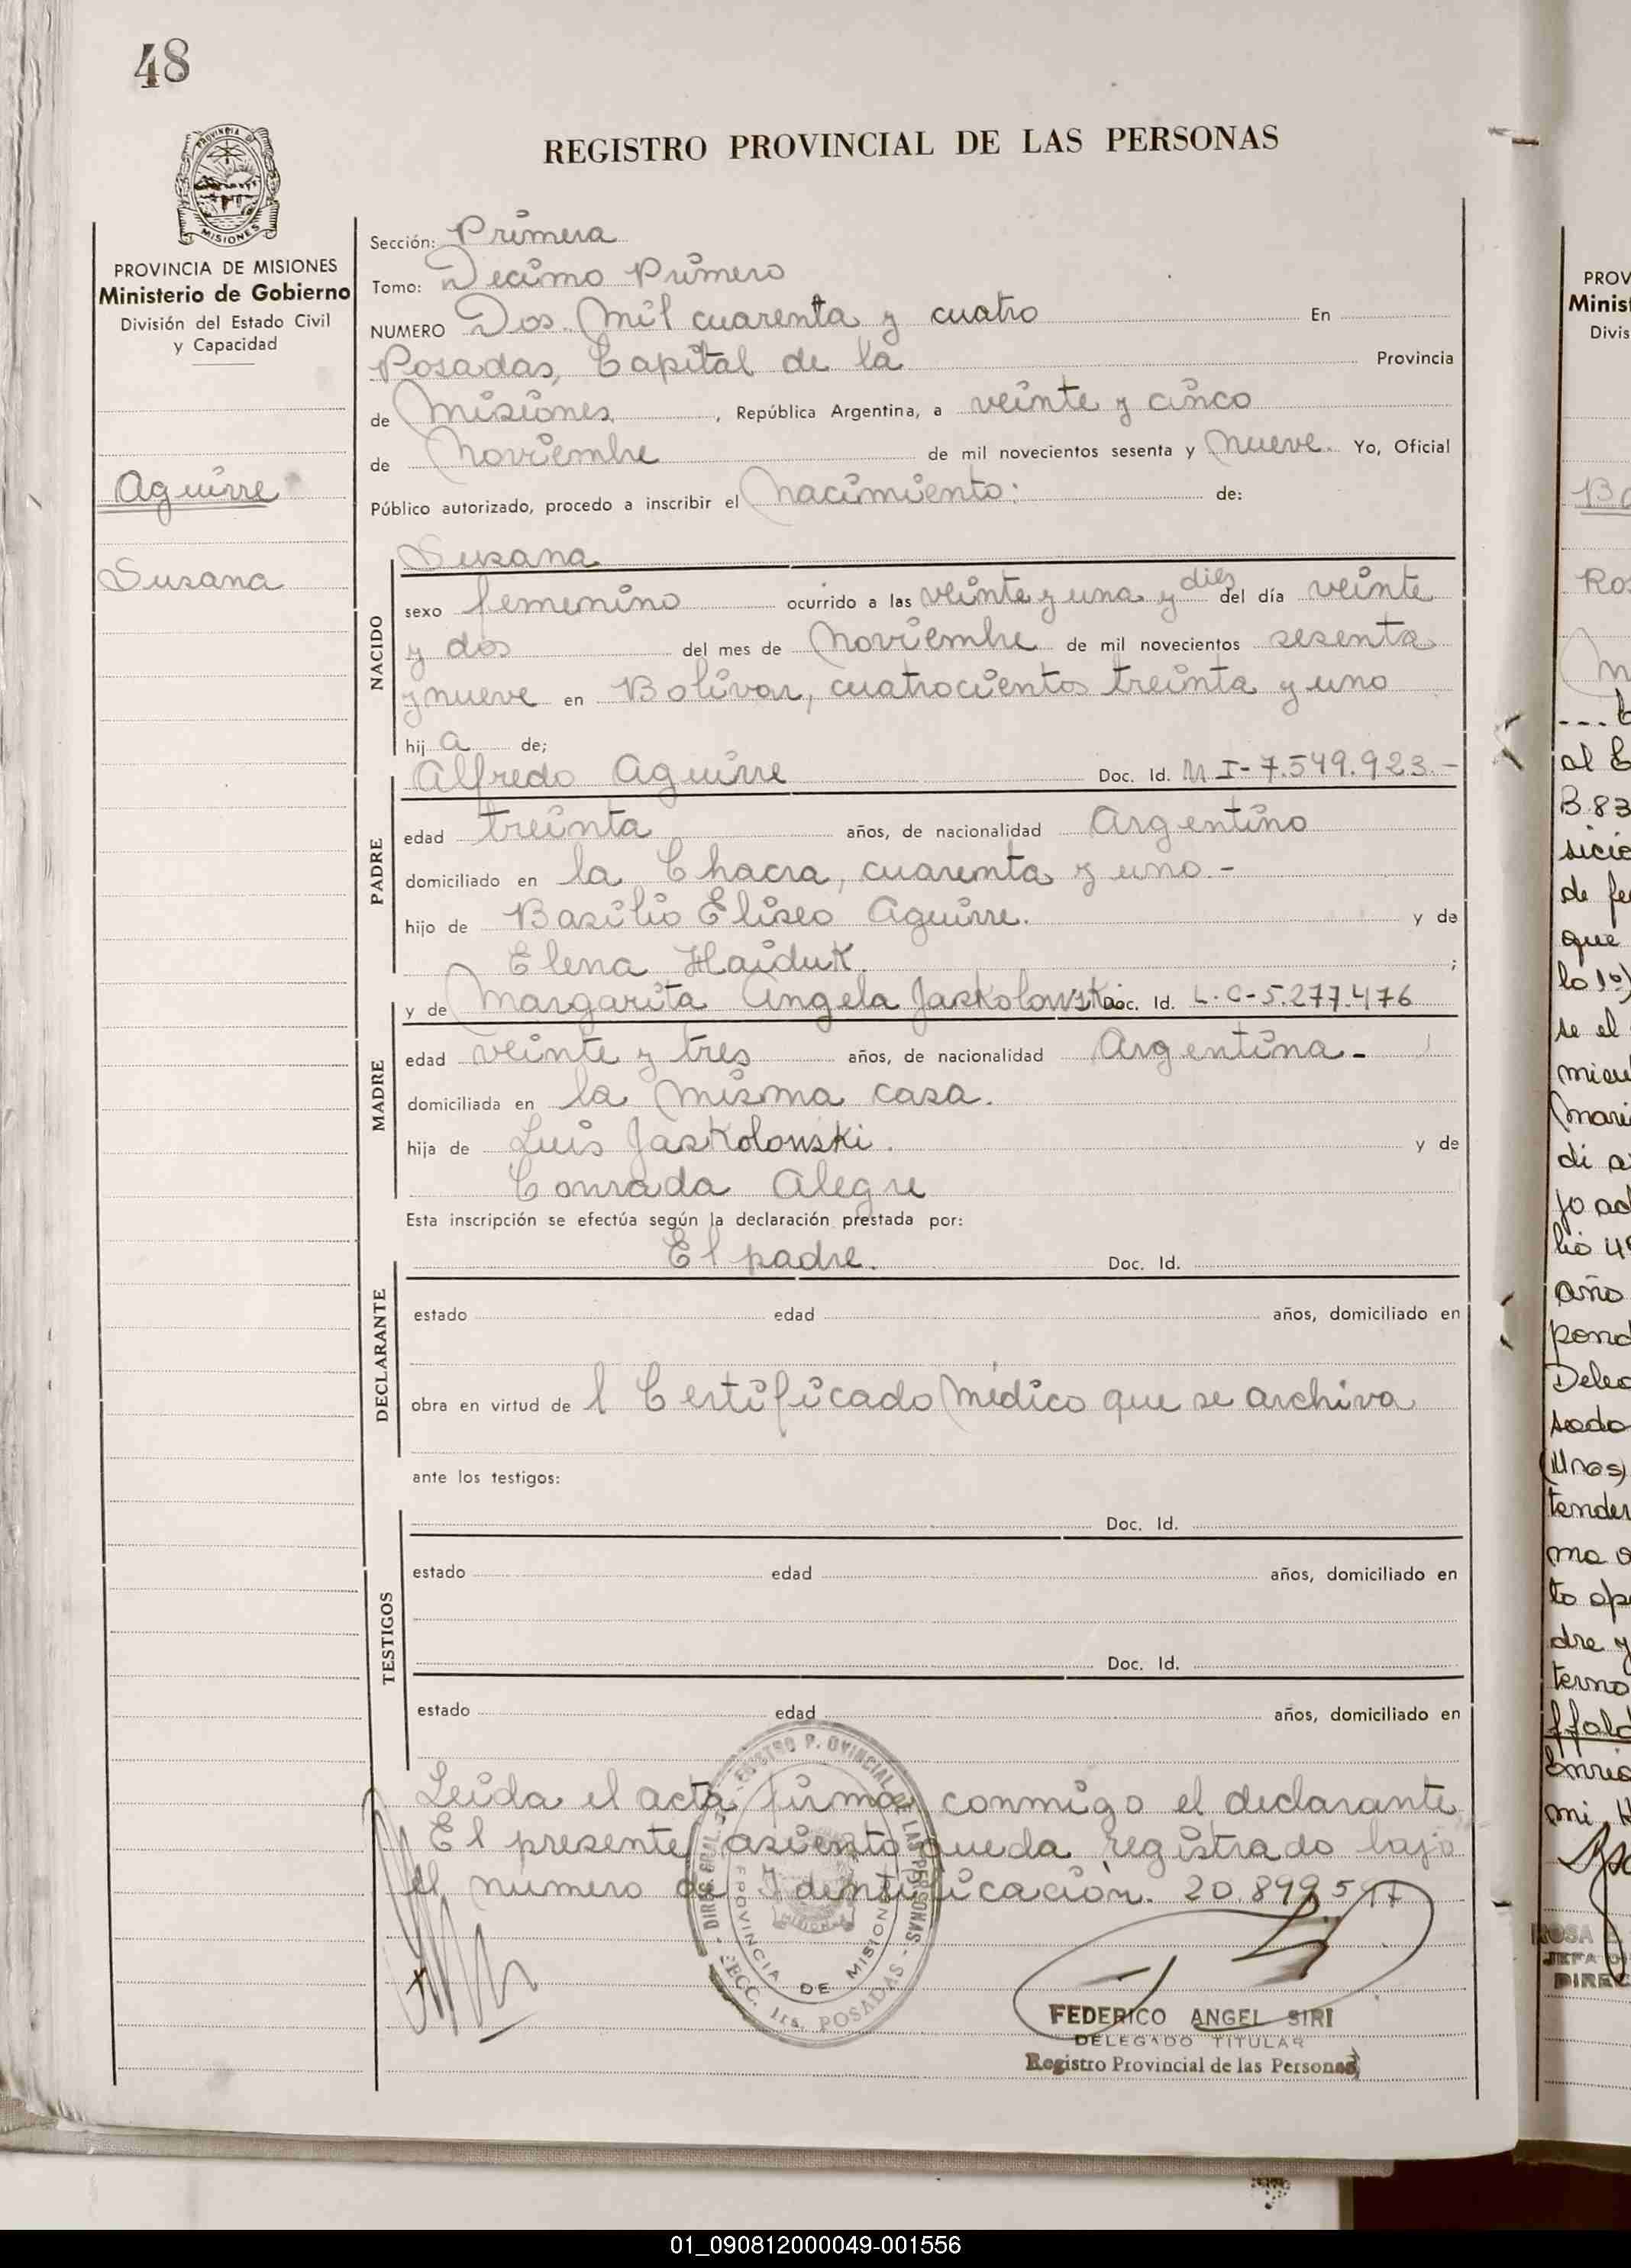 48
PROVINCIA DE
MISIONES
PROVINCIA DE MISIONES
Ministerio de Gobierno
División del Estado Civil
y Capacidad
Aguirre
Susana
REGISTRO PROVINCIAL DE LAS PERSONAS
Sección: Primera
Tomo: Decimo Primero
NUMERO Dos Mil cuarenta y cuatro En
Posadas, Capital de la Provincia
de Misiones , República Argentina, a veinte y cinco
de Noviembre de mil novecientos sesenta y Nueve. Yo, Oficial
Público autorizado, procedo a inscribir el Nacimiento: de:
NACIDO
Susana
sexo femenino ocurrido a las veinte y una y dies del día veinte
y dos del mes de Noviembre de mil novecientos sesenta
y nueve en Bolivar, cuatrocientos treinta y uno
hij a de;
PADRE
Alfredo Aguirre Doc. Id. M I-7.549.923.-
edad treinta años, de nacionalidad Argentino
domiciliado en la Chacra, cuarenta y uno.-
hijo de Basilio Eliseo Aguirre. y de
Elena Haiduk. ;
MADRE
y de Margarita Angela Jaskolowski Doc. Id. L.C-5.277.476
edad veinte y tres años, de nacionalidad Argentina.-
domiciliada en la misma casa.
hija de Luis Jaskolowski. y de
Conrada Alegre
Esta inscripción se efectúa según la declaración prestada por:
DECLARANTE
El padre. Doc. Id.
estado edad años, domiciliado en
obra en virtud de l Certificado Médico que se archiva
ante los testigos:
TESTIGOS
Doc. Id.
estado edad años, domiciliado en
Doc. Id.
estado edad años, domiciliado en
Leida el acta firma conmigo el declarante
El presente asiento queda registrado bajo
el numero de Identificación. 20.899.597
PROVINCIA DE MISIONES
SECC. 1ra. POSADAS
FEDERICO ANGEL SIRI
DELEGADO TITULAR
Registro Provincial de las Personas
PROV
Minist
Divis
Ros
al
B.83
de fe
que
se el
di a
año
Deleo
to
dre y
mi
JEFA
DIREC
01_090812000049-001556